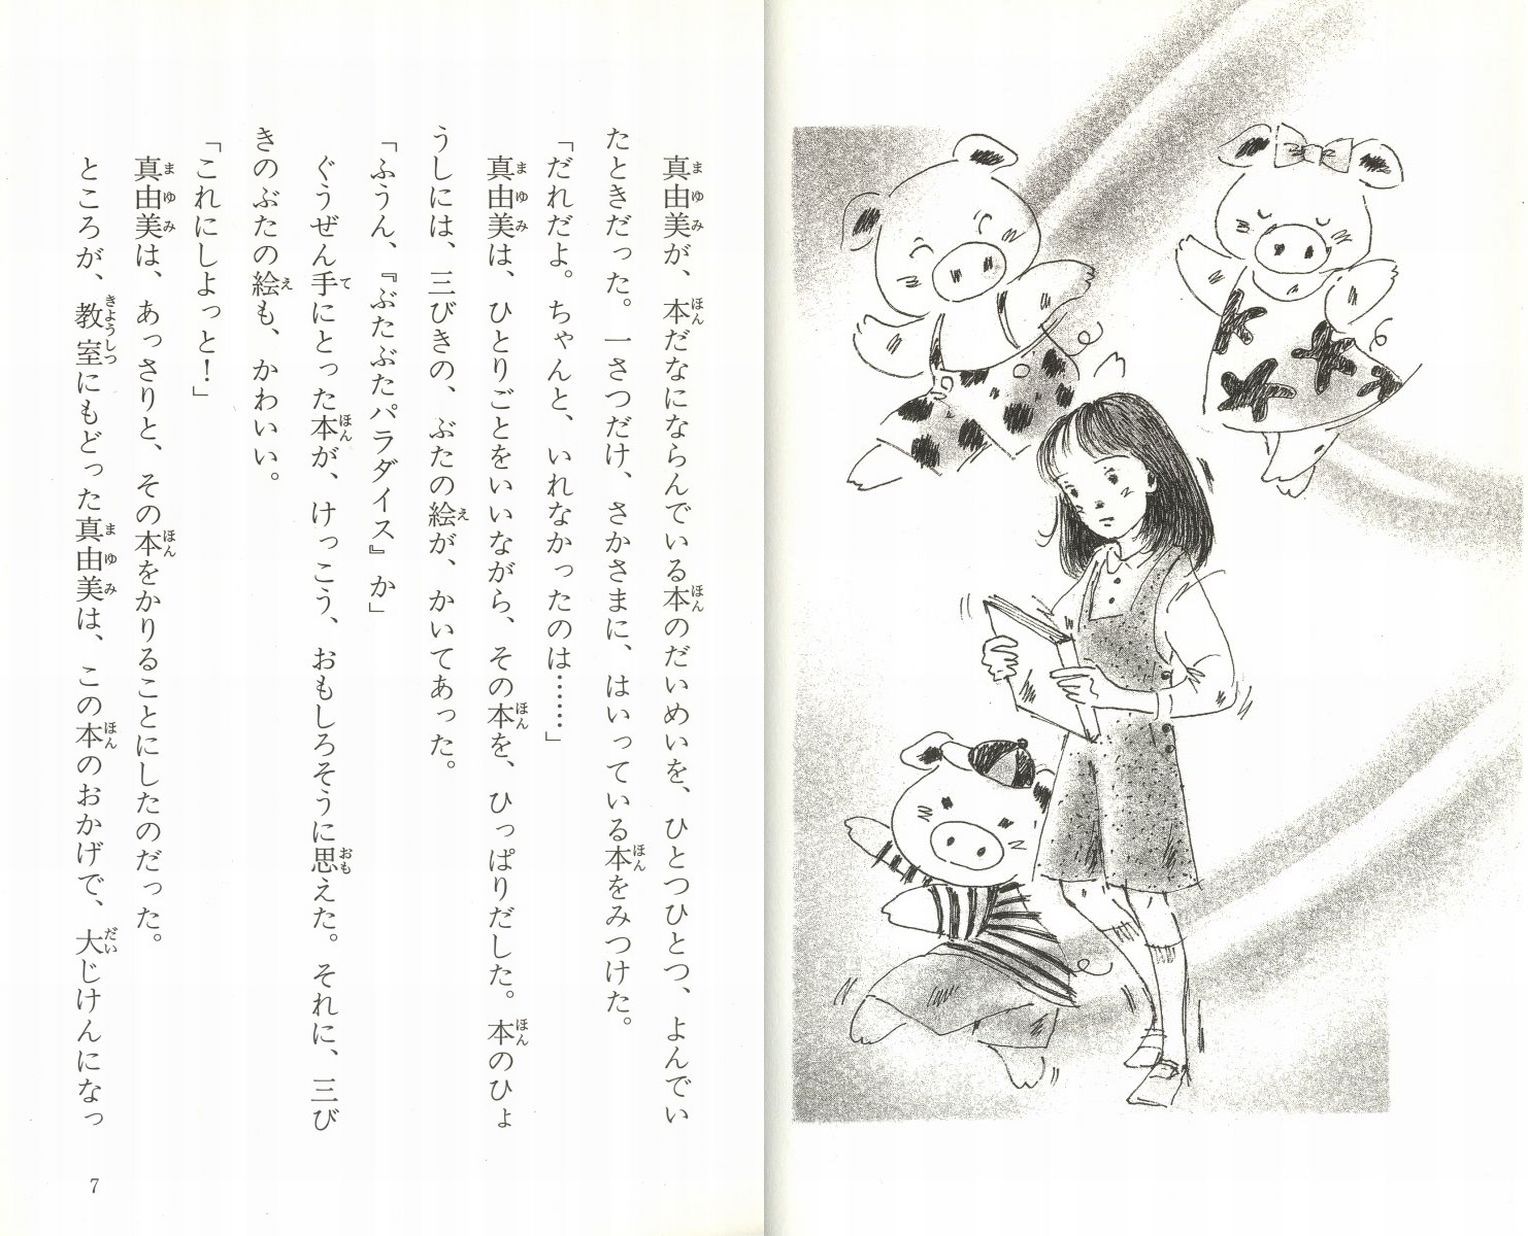 真由美が、本だなにならんでいる本のだいめいを、ひとつひとつ、よんでい
たときだった。一さつだけ、さかさまに、はいっている本をみつけた。
「だれだよ。ちゃんと、いれなかったのは……」
真由美は、ひとりごとをいいながら、その本を、ひっぱりだした。本のひょ
うしには、三びきの、ぶたの絵が、かいてあった。
「ふうん、『ぶたぶたパラダイス』か」
ぐうぜん手にとった本が、けっこう、おもしろそうに思えた。それに、三び
きのぶたの絵も、かわいい。
「これにしよっと！」
真由美は、あっさりと、その本をかりることにしたのだった。
ところが、教室にもどった真由美は、この本のおかげで、大じけんになっ
7